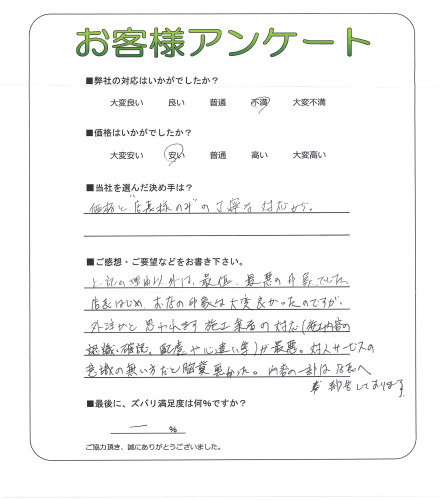 お客様アンケート
■弊社の対応はいかがでしたか?
大変良い 良い 普通 不満 大変不満
■価格はいかがでしたか?
大変安い 安い 普通 高い 大変高い
■当社を選んだ決め手は?
価格と"店長様のみ"の丁寧な対応から。
■ご感想・ご要望などをお書き下さい。
上記の理由以外は、最低、最悪の印象でした。
店長はじめ、お店の印象は大変良かったのですが、
外注かと思われます施工業者の対応(施工内容の
認識・確認、配慮や心遣い等)が最悪。対人サービスの
意識の無い方だと 悪かった。内容の一部は店長へ
報告しております。
■最後に、ズバリ満足度は何%ですか?
― %
ご協力頂き、誠にありがとうございました。